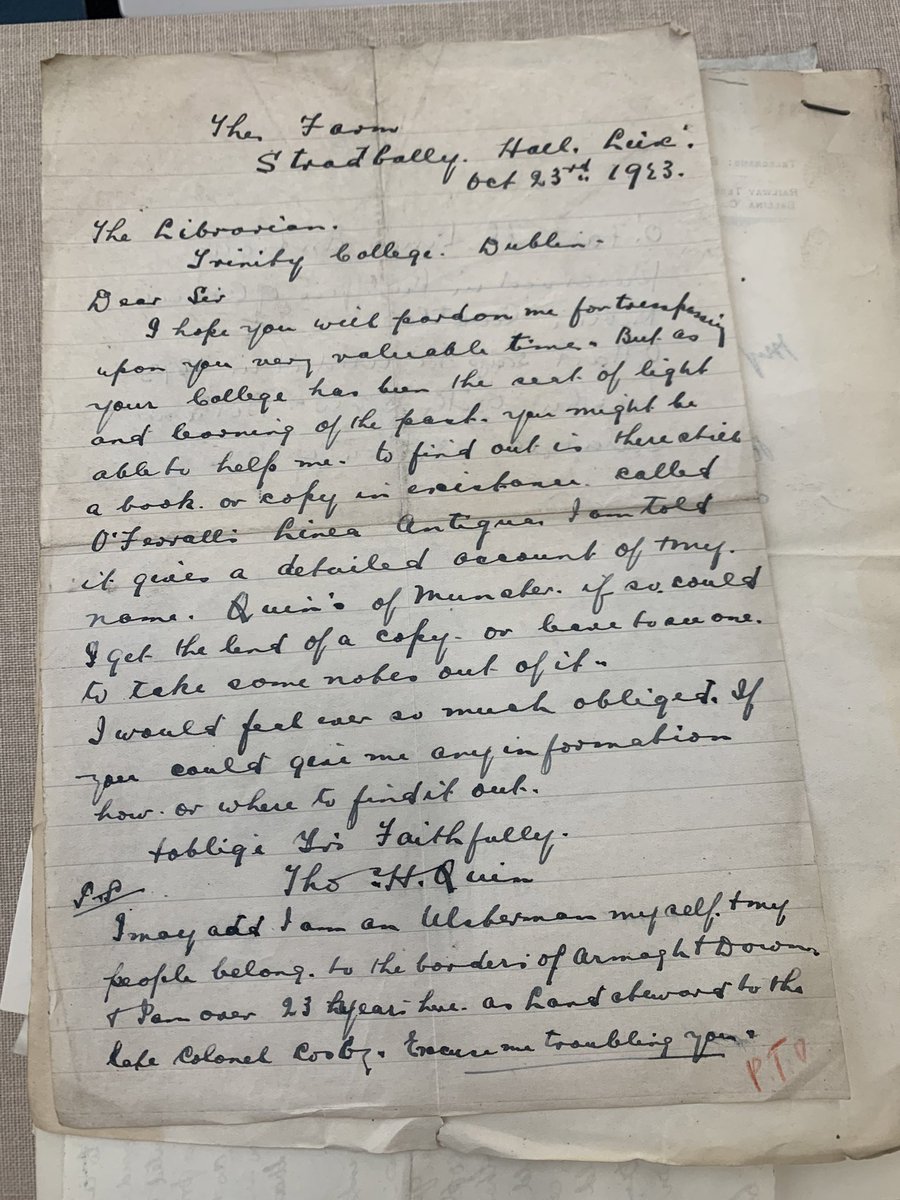 The Farm
Stradbally. Hall. Leix.
Oct 23rd 1923.
The Librarian.
Trinity College. Dublin.
Dear Sir
I hope you will pardon me for trespassing
upon you very valuable time. But as
your College has been the seat of light
and learning of the past. you might be
able to help me. to find out is there still
a book. or copy in existance. called
O'Ferrall's Linea Antiqua. I am told
it gives a detailed account of my.
name. Quin's of Munster. if so. could
I get the lend of a copy. or leave to see one.
to take some notes out of it.
I would feel ever so much obliged. If
you could give me any information
how. or where to find it out.
+ oblige Yrs Faithfully.
Thos. H. Quin
P.S
I may add I am an Ulsterman myself. + my
people belong. to the borders of Armagh + Down.
+ I am over 23 years here. as Land steward to the
late Colonel Cosby. Excuse me troubling you.
P.T.O
RAILWAY